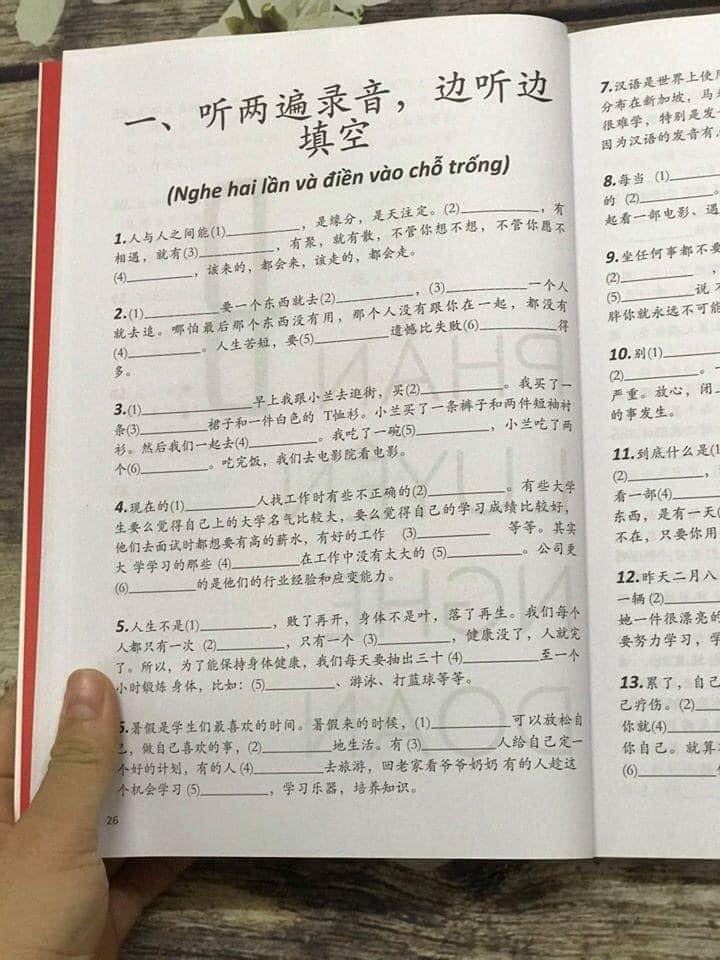 一、听两遍录音，边听边
填空
(Nghe hai lần và điền vào chỗ trống)
1.人与人之间能(1)__________，是缘分，是天注定。(2)__________，有
相遇，就有(3)__________，有聚，就有散，不管你想不想，不管你愿不
(4)__________，该来的，都会来，该走的，都会走。
2.(1)__________要一个东西就去(2)__________，(3)__________一个人
就去追。哪怕最后那个东西没有用，那个人没有跟你在一起，都没有
(4)__________。人生苦短，要(5)__________遗憾比失败(6)__________得
多。
3.(1)__________早上我跟小兰去逛街，买(2)__________。我买了一
条(3)__________裙子和一件白色的 T恤衫。小兰买了一条裤子和两件短袖衬
衫。然后我们一起去(4)__________。我吃了一碗(5)__________，小兰吃了两
个(6)__________。吃完饭，我们去电影院看电影。
4.现在的(1)__________人找工作时有些不正确的(2)__________。有些大学
生要么觉得自己上的大学名气比较大，要么觉得自己的学习成绩比较好，
他们去面试时都想要有高的薪水，有好的工作 (3)__________ 等等。其实
大 学学习的那些 (4)__________在工作中没有太大的 (5)__________。公司更
(6)__________的是他们的行业经验和应变能力。
5.人生不是(1)__________，败了再开，身体不是叶，落了再生。我们每个
人都只有一次 (2)__________，只有一个 (3)__________，健康没了，人就完
了。所以，为了能保持身体健康，我们每天要抽出三十 (4)__________至一个
小时锻炼 身体，比如：(5)__________、游泳、打蓝球等等。
6.暑假是学生们最喜欢的时间。暑假来的时候，(1)__________可以放松自
己，做自己喜欢的事，(2)__________地生活。有 (3)__________人给自己定一
个好的计划，有的人 (4)__________去旅游，回老家看爷爷奶奶 有的人趁这
个机会学习 (5)__________，学习乐器，培养知识。
26
PHẦN
LUYỆN
NGHE
ĐOẠN
7.汉语是世界上使用
分布在新加坡，马
很难学，特别是发
因为汉语的发音有
8.每当 (1)__________
的 (2)__________。
起看一部电影、遇
9.坐任何事都不要
(2)__________，
(5)__________说 不
胖你就永远不可能
10.别(1)__________
(2)__________。一
严重。放心，闭
的事发生。
11.到底什么是(1
(2)__________，
看一部(4)__________
东西，是有一天(
不在，只要你用
12.昨天二月八
一辆 (2)__________
她一件很漂亮的
要努力学习，学
13.累了，自己
己疗伤。(2)__________
你就(4)__________
你自己。就算
(6)__________